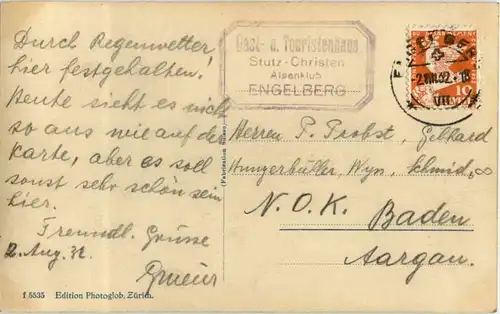 Durch Regenwetter
hier festgehalten!
Heute sieht es nicht
so aus wie auf der
Karte, aber es soll
sonst sehr schön sein
hier.
Freundl. Grüsse
2. Aug. 32.
Gast- u. Touristenhaus
Stutz-Christen
Alpenklub
ENGELBERG
ENGELBERG
2.VIII.32.
VII
10
Herren P. Probst, Gebhard
Hungerbühler, Wyn, Schmid,
N.O.K. Baden
Aargau.
f 5535 Edition Photoglob, Zürich.